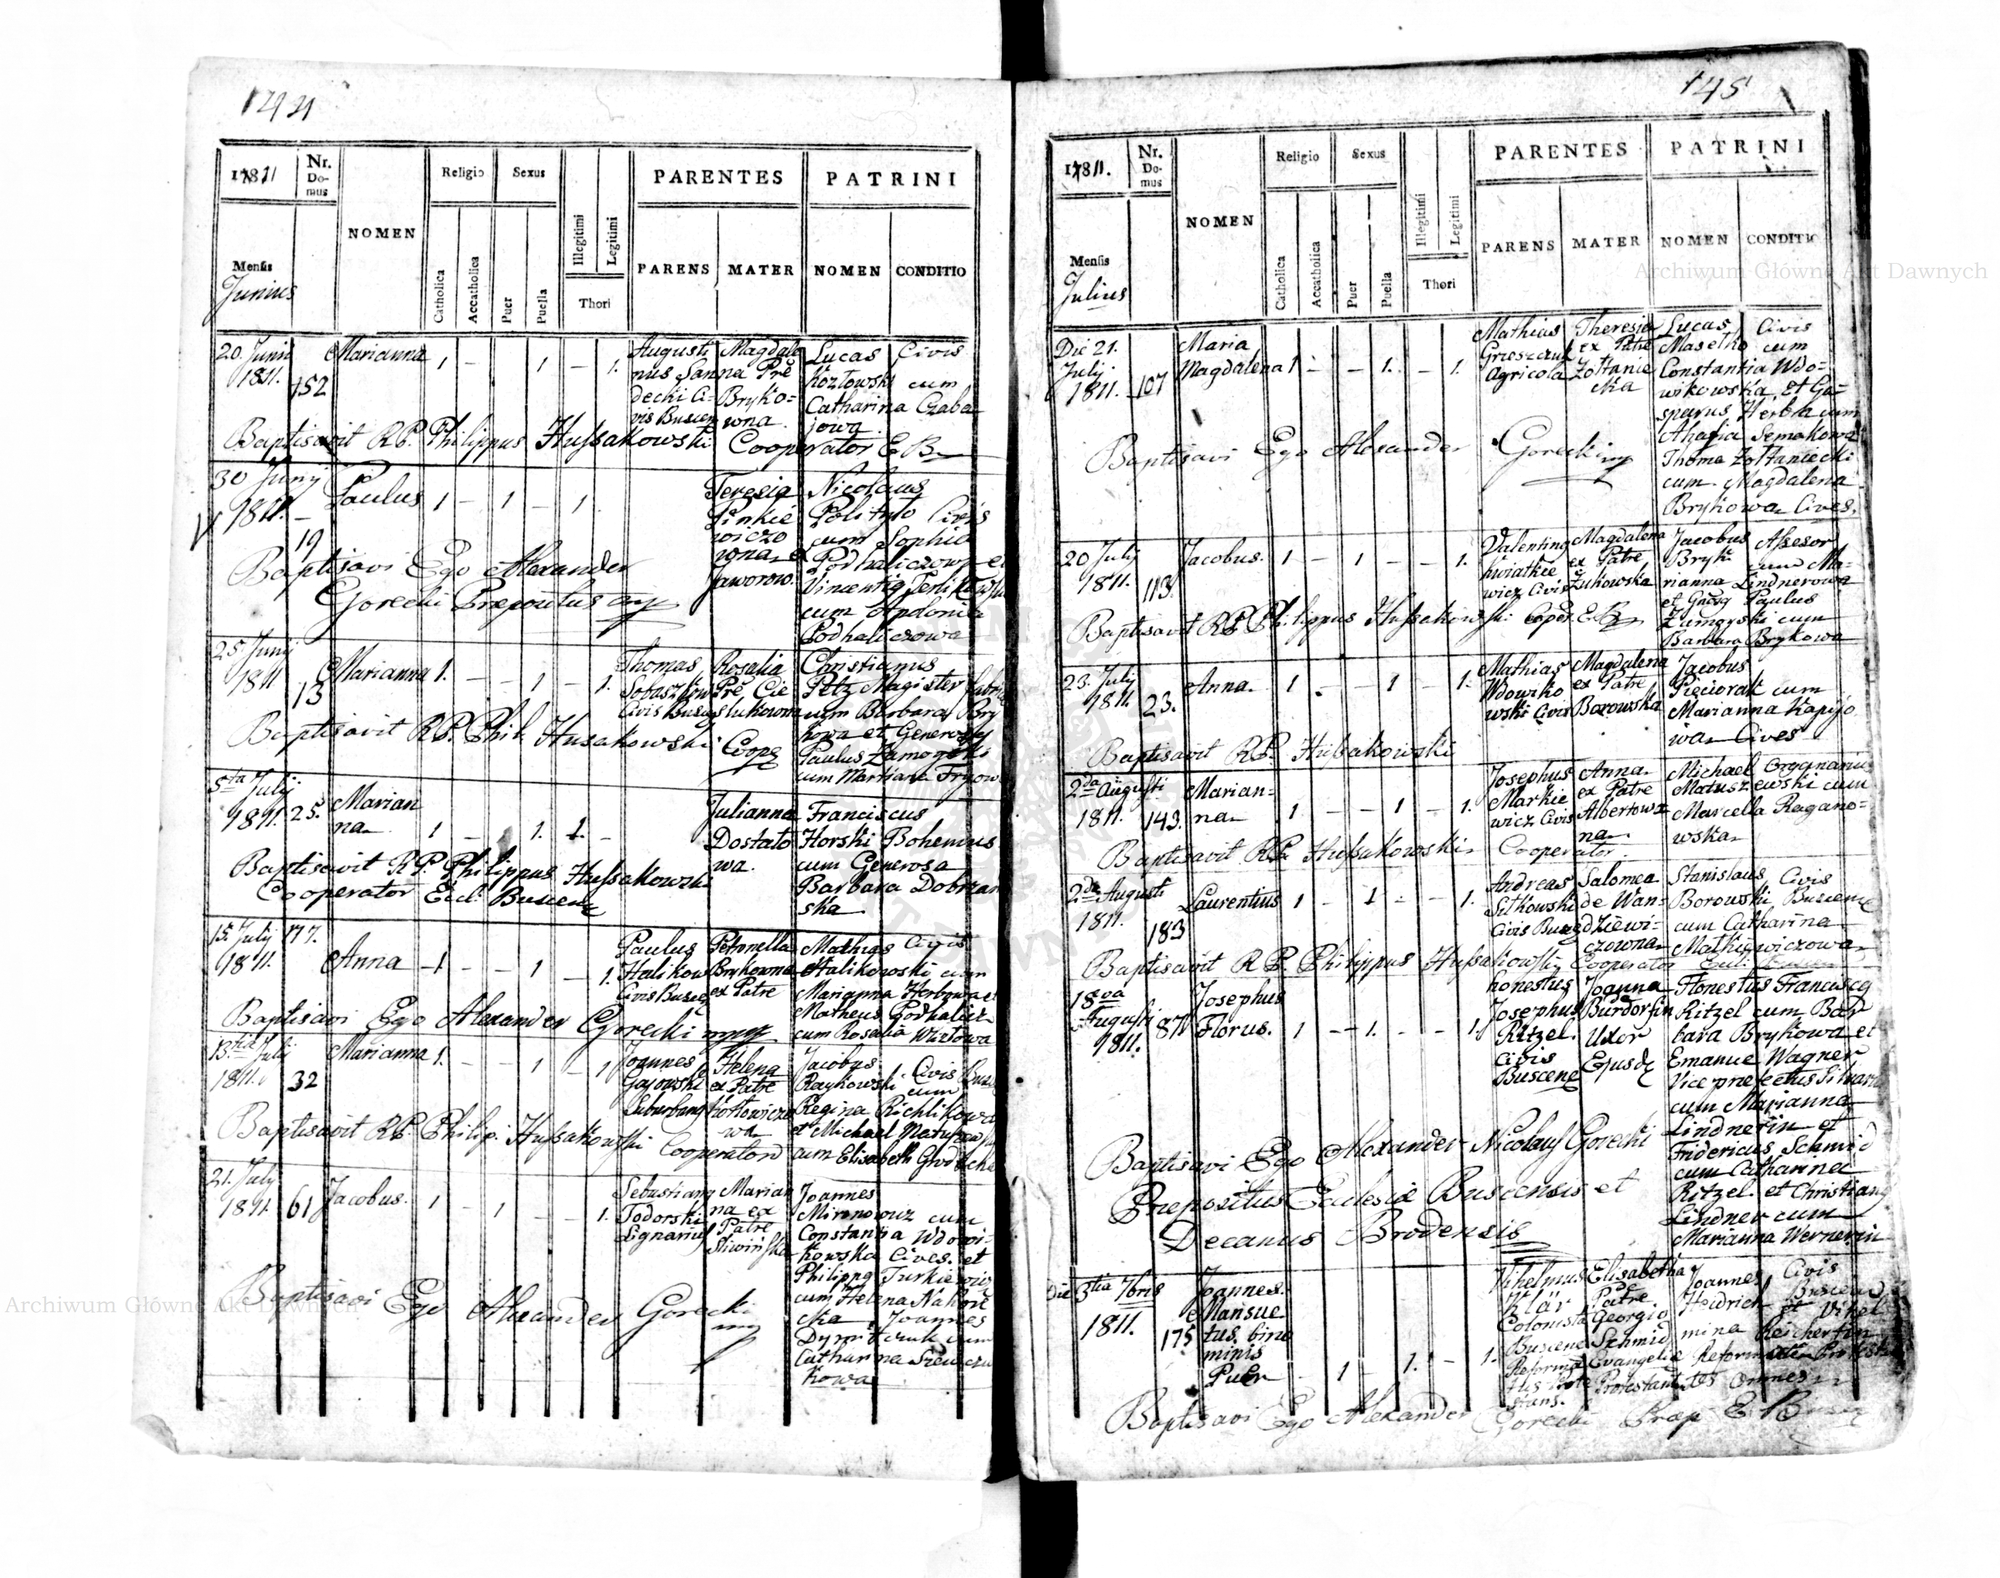 144
1811
Nr. Domus
NOMEN
Religio
Sexus
PARENTES
PATRINI
Mensis
Junius
Catholica
Accatholica
Puer
Puella
Illegitimi
Legitimi
Thori
PARENS
MATER
NOMEN
CONDITIO
20. Junii 1811.
152
Marianna
1 — 1 — 1.
Augustinus Sandecki Civis Buscen
Magdalena Pre Brykowna
Lucas Kozłowski cum Catharina Czabajowa
Civis
Baptisavit RP. Philippus Hussakowski Cooperator E B
30 Junij 1811.
19
Paulus
1 — 1 — 1
Teresia Pinkiewiczowna ex Jaworow.
Nicolaus Polityło Civis cum Sophia Podhaliczowa et Vincentio cum Apolonia Podhaliczowa
Baptisavi Ego Alexander
Gorecki Praepositus mp
25 Junij 1811
13
Marianna
1. — — 1 — 1.
Thomas Civis
Rosalia Pre
Christianus Petz Magister cum Barbara Brykowa et Generosus Paulus Zamoyski cum
Baptisavit RP. Phil. Husakowski Coope
5ta July 1811.
25.
Marianna
1 — 1. 1. —
Julianna Dostatowa.
Franciscus Horski Bohemus cum Generosa Barbara Dobrzanska
Baptisavit RP. Philippus Hussakowski
Cooperator Eccl. Buscen
15 July 1811.
177.
Anna
1 — — 1 — 1.
Paulus Halikow Civis Busce
Petronella Brykowna ex Patre
Mathias Civis Halikowski cum Marianna Herbowa et Matheus Podhalicz cum Rosalia
Baptisavi Ego Alexander Gorecki mp
13tia July 1811.
32
Marianna
1. — — 1 — 1
Joannes Gajowski Suburbanus
Helena ex Patre
Jacobus Civis Raykowski cum Regina Richlikowa et Michael cum Elisabeth
Baptisavit RP. Philip. Hussakowski Cooperator
21. July 1811.
61
Jacobus.
1 — 1 — — 1.
Sebastianus Todorski Lignarius
Marianna ex Patre Sliwinska
Joannes Mironowicz cum Constantia Wdowikowska Cives. et Philippus Turkiewicz cum Helena Joannes cum Catharina
Baptisavi Ego Alexander Gorecki mp
145
1811.
Nr. Domus
NOMEN
Religio
Sexus
PARENTES
PATRINI
Mensis
Julius
Catholica
Accatholica
Puer
Puella
Illegitimi
Legitimi
Thori
PARENS
MATER
NOMEN
CONDITIO
Die 21. July 1811.
107
Maria Magdalena
1 — — 1. — 1.
Mathias Greszczuk Agricola
Theresia ex Patre Zołtaniecka
Lucas Masełko cum Constantia Wdowikowska, et Gasparus Herbta cum Ahafia Semakowa Thoma Zołtaniecki cum Magdalena Brykowa Cives.
Civis
Baptisavi Ego Alexander Gorecki mp
20 July 1811.
113.
Jacobus.
1 — 1 — — 1.
Valentinus Kwiatkiewicz Civis
Magdalena ex Patre Zukowska
Jacobus Bryk Assesor cum Marianna Lindnerowa et Paulus Zamoyski cum Barbara Brykowa
Baptisavit RP. Philippus Hussakowski Coper. E. B
23. July 1811.
23.
Anna.
1 — 1 — 1.
Mathias Wdowikowski Civis
Magdalena ex Patre Borowska
Jacobus Pięciorak cum Marianna Kapijowa Cives
Baptisavit RP. Hussakowski
2da Augusti 1811.
143.
Marianna
1. — — 1 — 1.
Josephus Markiewicz Civis
Anna ex Patre Albertowzna
Michael Organarius Matuszewski cum Marcella Raganowska
Baptisavit RP. Hussakowski Cooperator
2da Augusti 1811.
183
Laurentius
1 — 1 — — 1.
Andreas Sitkowski Civis Busc
Salomea de Wandziewiczowna
Stanislaus Civis Borowski Buscene cum Catharina Mathiewiczowa
Baptisavit RP. Philippus Hussakowski Cooperator
18va Augusti 1811.
87
Josephus Florus.
1 — 1. — — 1.
honestus Josephus Ritzel. Civis Buscene
Joanna Burdorfin Uxor Ejusd
Honestus Franciscus Ritzel cum Barbara Brykowa et Emanuel Wagner Vice praefectus cum Marianna Lindnerin et Fridericus Schmid cum Catharina Ritzel. et Christiano Lindner cum Marianna Wernerin
Baptisavi Ego Alexander Nicolaus Gorecki
Praepositus Ecclesiae Buscensis et
Decanus Brodensis
Die 3tia 7bris 1811.
175
Joannes Mansuetus. binominis Puer
— 1 — 1. — 1.
Vilhelmus Klär Colonista Buscene
Elisabetha Patre Georgio Schmid
Joannes Heidrich Civis Buscens et Vihelmina Reichertin
Baptisavi Ego Alexander Gorecki Praep. E. Busce
Archiwum Główne Akt Dawnych
Archiwum Główne Akt Dawnych